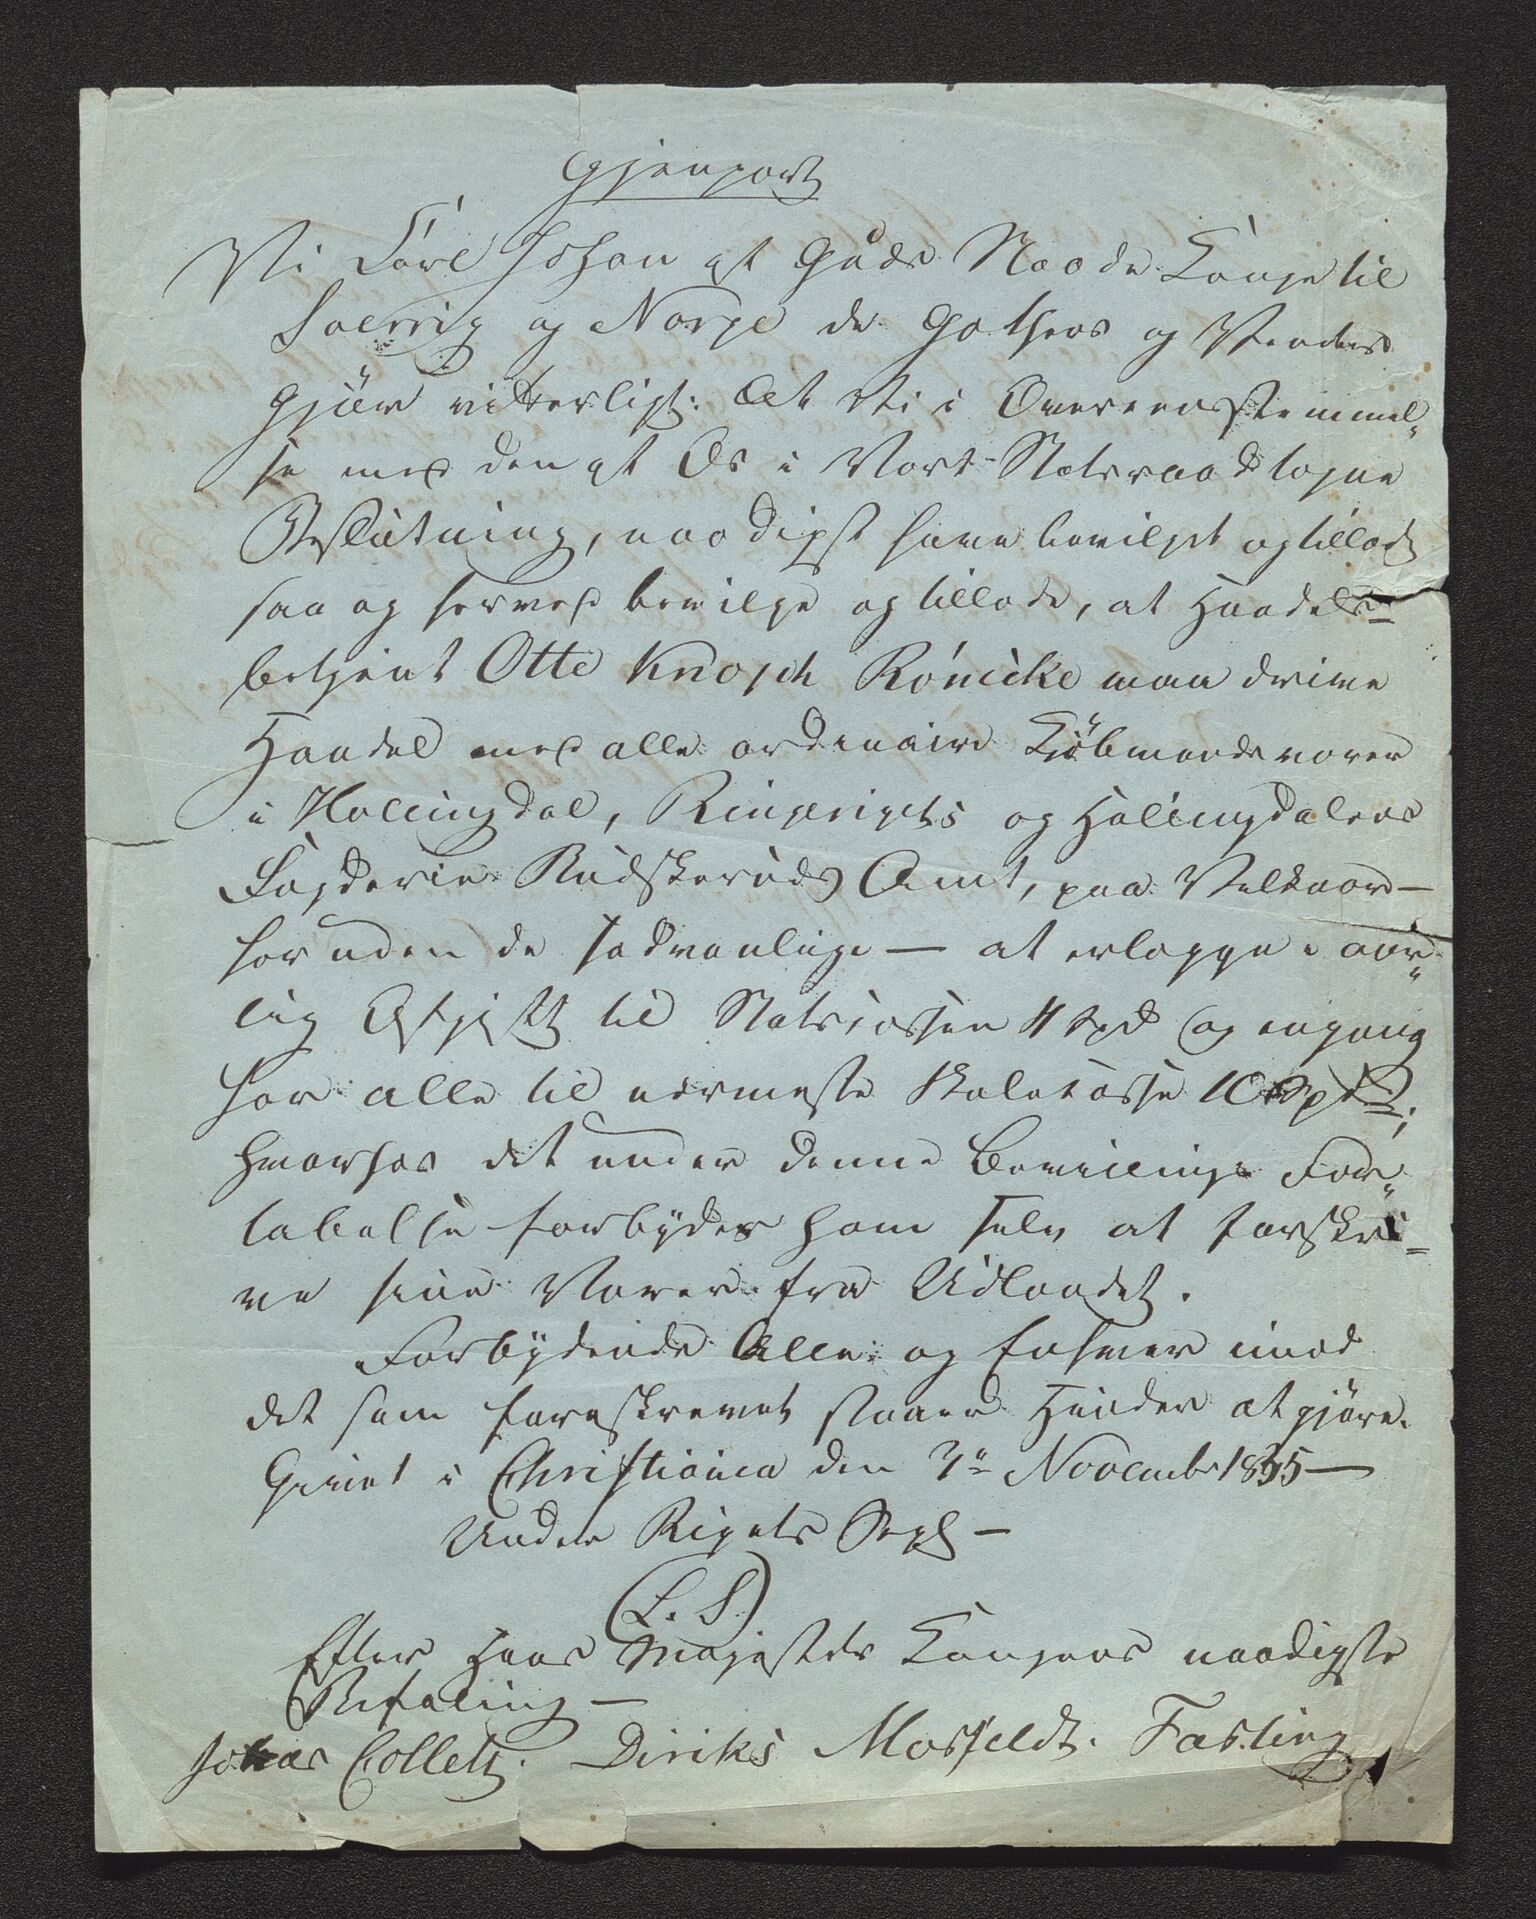 Gjenpart
Vi Carl Johan af Guds Naade Konge til
Sverrig og Norge de Gothers og Venders
Gjøre vitterligt: At Vi i Overeensstemmel„
se med den af Os i Vort Statsraad tagne
Beslutning, naadigst have bevilget og tilladt
saa og herved bevilge og tillade, at Handels=
betjent Otto Knoph Rønicke maa drive
Handel med alle ordinaire Kjøbmandsvarer
i Hallingdal, Ringerigets og Hallingdalens
Fogderie Budskeruds Amt, paa Vilkaar —
foruden de sædvanlige — at erlægge i aar„
lig Afgift til Statscassen 4 Spd og engang
for alle til nærmeste Skolekasse 10 Spd;
hvorhos det under denne Bevillings For„
tabelse forbydes ham selv at forskri=
ve sine Varer fra Udlandet.
Forbydende Alle og Enhver imod
det som foreskrevet staaer Hinder at gjøre.
Givet i Christiania den 7de November 1835 —
Under Rigets Segl —
(L. S.)
Efter Hans Majestæts Kongens naadigste
Befaling —
Jonas Collett. Diriks Mosfeldt. Fasting